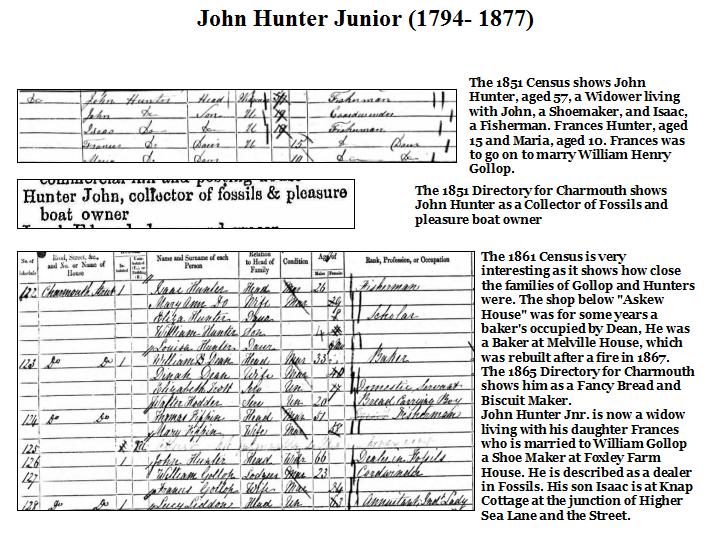 John Hunter Junior (1794- 1877)
The 1851 Census shows John
Hunter, aged 57, a Widower living
with John, a Shoemaker, and Isaac,
a Fisherman. Frances Hunter, aged
15 and Maria, aged 10. Frances was
to go on to marry William Henry
Gollop.
Do John Hunter Head Fisherman
John Do Son Cordwainer
Isaac Do Do Fisherman
Frances Do Daur 15
Maria Do Daur 10
Hunter John, collector of fossils & pleasure
boat owner
The 1851 Directory for Charmouth shows
John Hunter as a Collector of Fossils and
pleasure boat owner
No. of Schedule Road, Street, &c., and No. or Name of House Name and Surname of each Person Relation to Head of Family Condition Age of Rank, Profession, or Occupation
Males Females
122 Charmouth Street 1 Isaac Hunter Head Mar 26 Fisherman
Mary Ann Do Wife Mar
Eliza Hunter Daur Scholar
William Hunter Son
Louisa Hunter Daur
123 Do Do 1 William Dean Head Mar 33 Baker
Dinah Dean Wife Mar
Elizabeth Scott Un Domestic Servant
Walter Hodder Un 20 Bread Carrying Boy
124 Do Do Thomas Head Mar 51 Fisherman
Mary Wife Mar
125
126 1 John Hunter Head 66 Dealer in Fossils
127 William Gollop Lodger Mar 23 Cordwainer
Frances Gollop Wife Mar
128 Do Do 1 Lucy Liddon Head Un
The 1861 Census is very
interesting as it shows how close
the families of Gollop and Hunters
were. The shop below "Askew
House" was for some years a
baker's occupied by Dean, He was
a Baker at Melville House, which
was rebuilt after a fire in 1867.
The 1865 Directory for Charmouth
shows him as a Fancy Bread and
Biscuit Maker.
John Hunter Jnr. is now a widow
living with his daughter Frances
who is married to William Gollop
a Shoe Maker at Foxley Farm
House. He is described as a dealer
in Fossils. His son Isaac is at Knap
Cottage at the junction of Higher
Sea Lane and the Street.